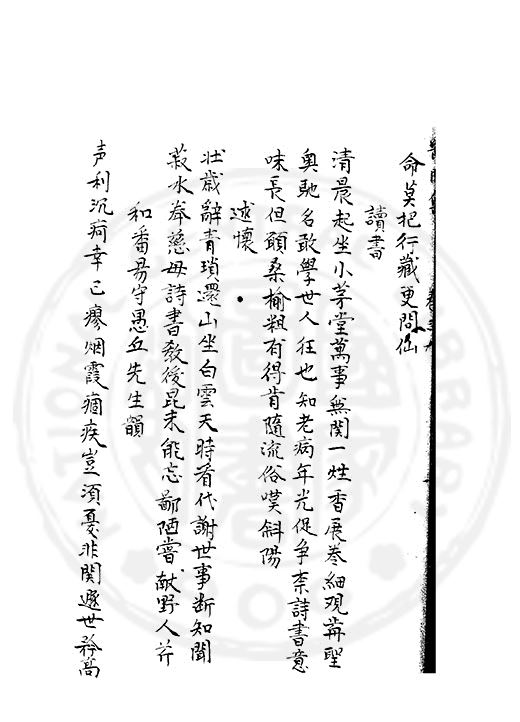 命莫把行藏更問仙
讀書
清晨起坐小茅堂萬事無関一炷香展卷細观前聖
奥馳名敢學世人狂也知老病年光促争柰詩書意
味長但願桑榆粗有得肯隨流俗嘆斜陽
述懷
壮歳辭青瑣還山坐白雲天時看代謝世事断知聞
菽水奉慈母詩書教後昆未能忘鄙陋嘗献野人芹
和番昜守愚丘先生韻
声利沉疴幸已瘳烟霞痼疾豈須憂非関遯世矜高